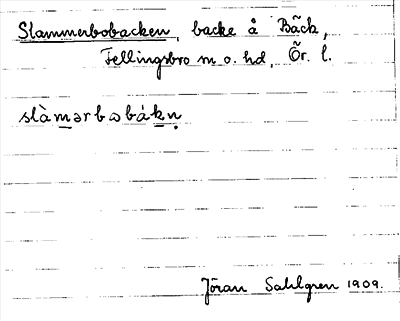 Slammerbobacken, backe å Bäck,
Fellingsbro m. o. hd, Ör. l.
slàmərbəbákn̥
Jöran Sahlgren 1909.